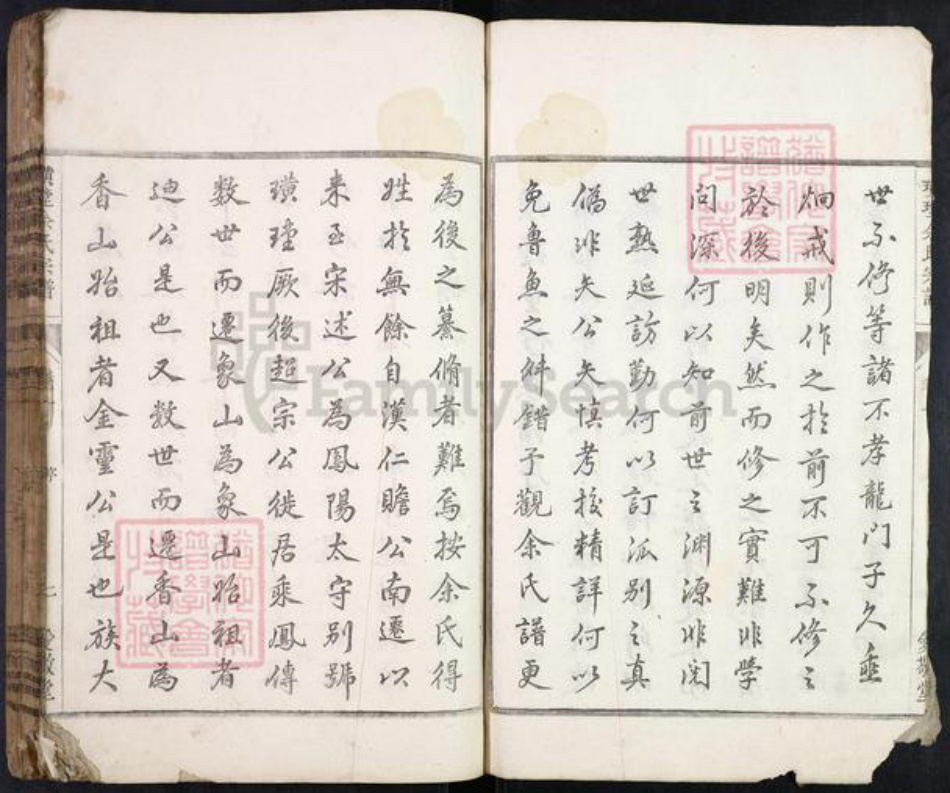 世不修等諸不孝龍門子久垂
炯戒則作之於前不可不修之
於後明矣然而修之實難非學
問深何以知前世之淵源非閱
世熟延訪勤何以訂派別之真
偽非矢公矢慎考挍精詳何以
免魯魚之舛錯予觀余氏譜更
為後之纂脩者難焉按余氏得
姓於無餘自漢仁贍公南遷以
来至宋述公為鳳陽太守别號
璜瑝厥後超宗公徙居乘鳳傳
数世而遷象山為象山始祖者
迪公是也又数世而遷香山為
香山始祖者金靈公是也族大
余氏宗譜
序
七
愛敬堂
FamilySearch